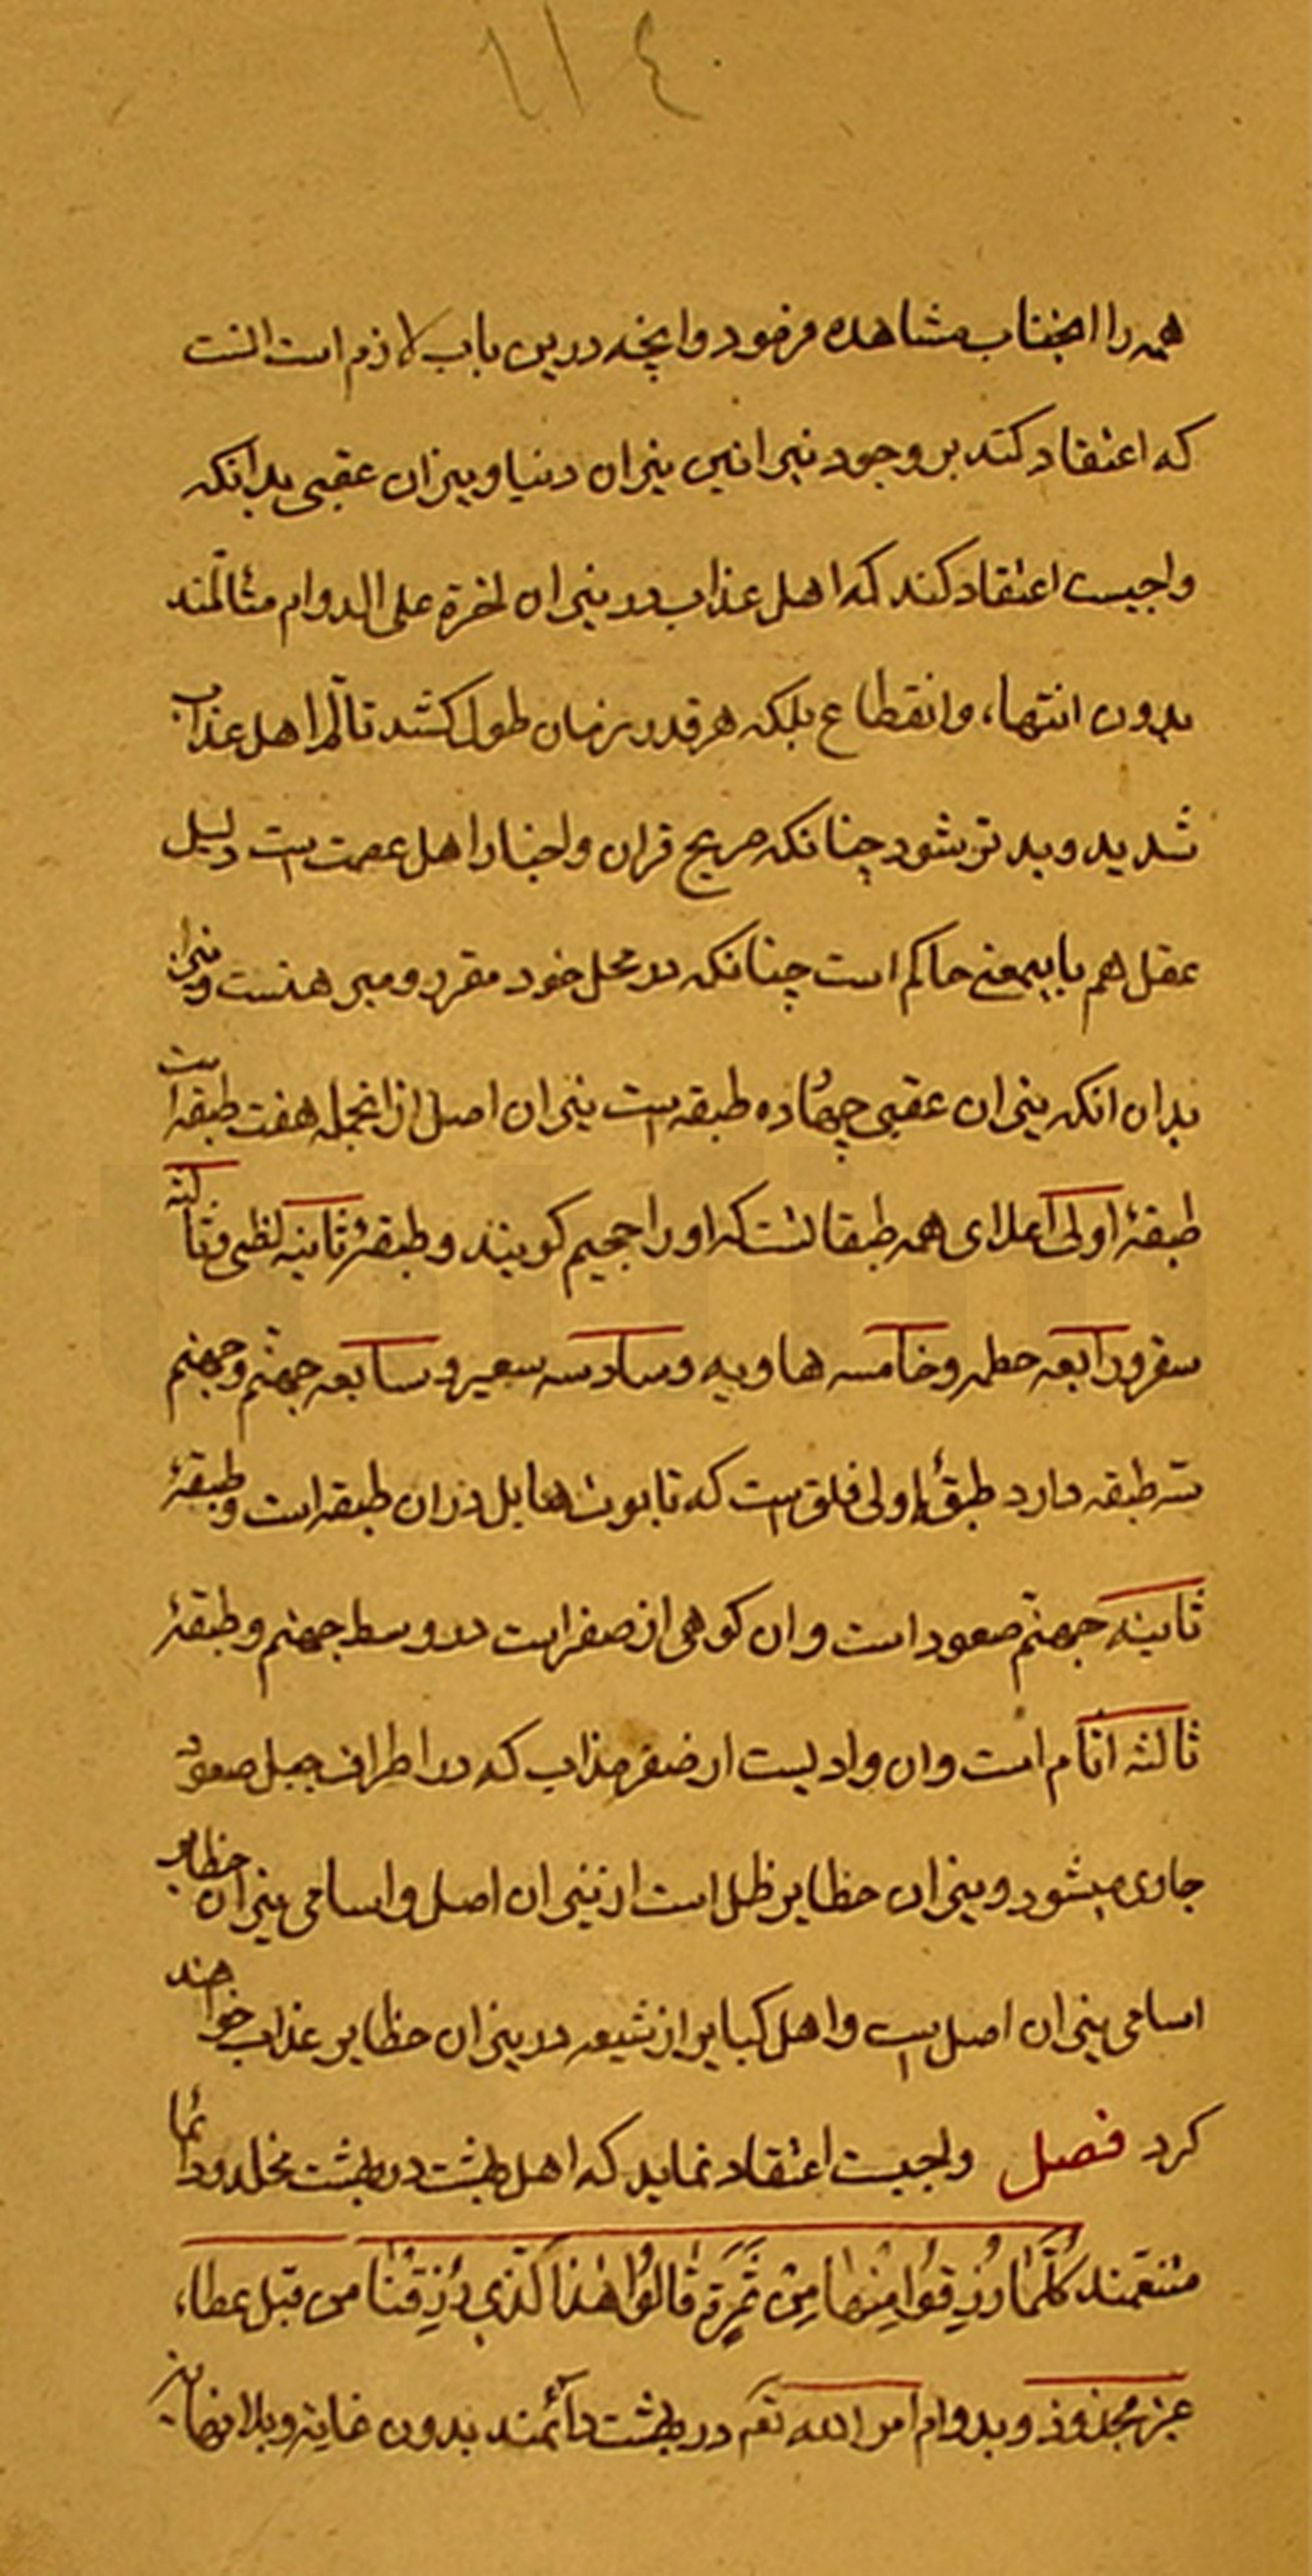 ١١٤
همه را انجناب مشاهده فرمود وانچه درین باب لازم است انست
که اعتقاد کند بر وجود نیرانین نیران دنیا و نیران عقبی بدانکه
واجبست اعتقاد کند که اهل عذاب در نیران اخرة علی الدوام متألمند
بدون انتهاء وانقطاع بلکه هر قدر زمان طول کشد تألم اهل عذاب
شدید و بدتر شود چنانکه صریح قران واخبار اهل عصمت است دلیل
عقل هم باینمعنی حاکم است چنانکه در محل خود مقرر ومبرهنست ونیز
بدان انکه نیران عقبی چهارده طبقه است نیران اصل از انجمله هفت طبقه است
طبقهٔ اولی اعلای همه طبقاتست که او را جحیم کویند و طبقهٔ ثانیه لظی وثالثه
سقر ورابعه حطمه وخامسه هاویه وسادسه سعیر وسابعه جهنم وجهنم
سه طبقه دارد طبقهٔ اولی فلق است که تابوت هابل دران طبقه است وطبقهٔ
ثانیه جهنم صعود است وان کوهی از صفر است در وسط جهنم وطبقهٔ
ثالثه اثام است وان وادیست از صفر مذاب که در اطراف جبل صعود
جاری میشود ونیران حظایر ظل است از نیران اصل واسامی نیران حظایر
اسامی نیران اصل است واهل کبایر از شیعه در نیران حظایر عذاب خواهند
کرد فصل واجبست اعتقاد نماید که اهل بهشت در بهشت مخلد ودائما
متنعمند كُلَّمَا رُزِقُوا مِنْهَا مِنْ ثَمَرَةٍ قَالُوا هٰذَا الَّذِي رُزِقْنَا من قبل عطاء
غیر مجذوذ وبدوام امر الله تعم در بهشت دائمند بدون غایة وبلا نهایة